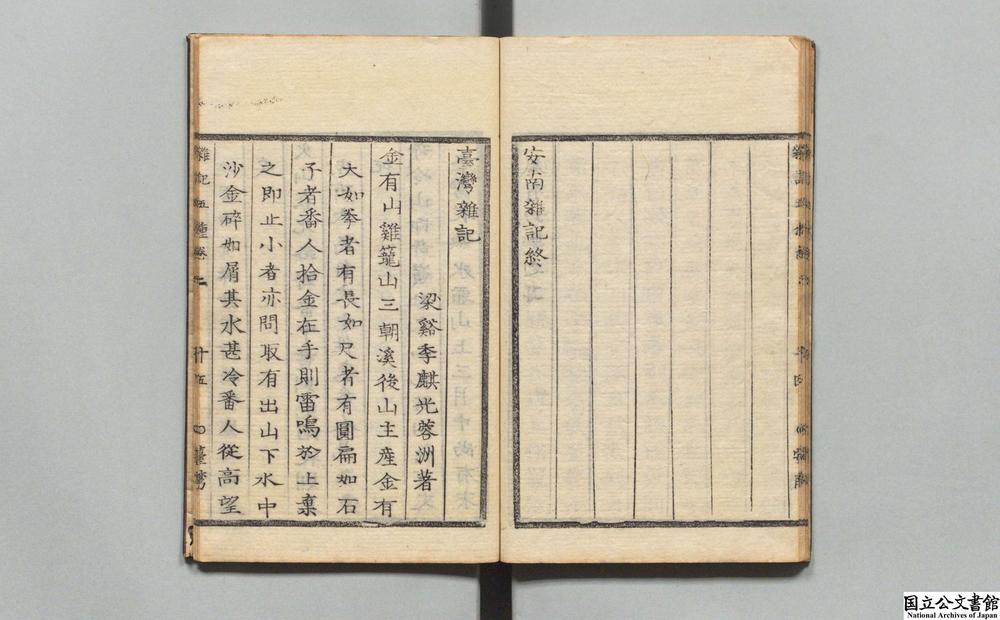 安南雜記終
臺灣雜記
梁谿季麒光蓉洲著
金有山雞籠山三朝溪後山主産金有
大如拳者有長如尺者有圓扁如石
子者番人拾金在手則雷鳴於上棄
之即止小者亦間取有出山下水中
沙金碎如屑其水甚冷番人從高望
雜記五種卷二
廿五
臺灣
国立公文書館
National Archives of Japan